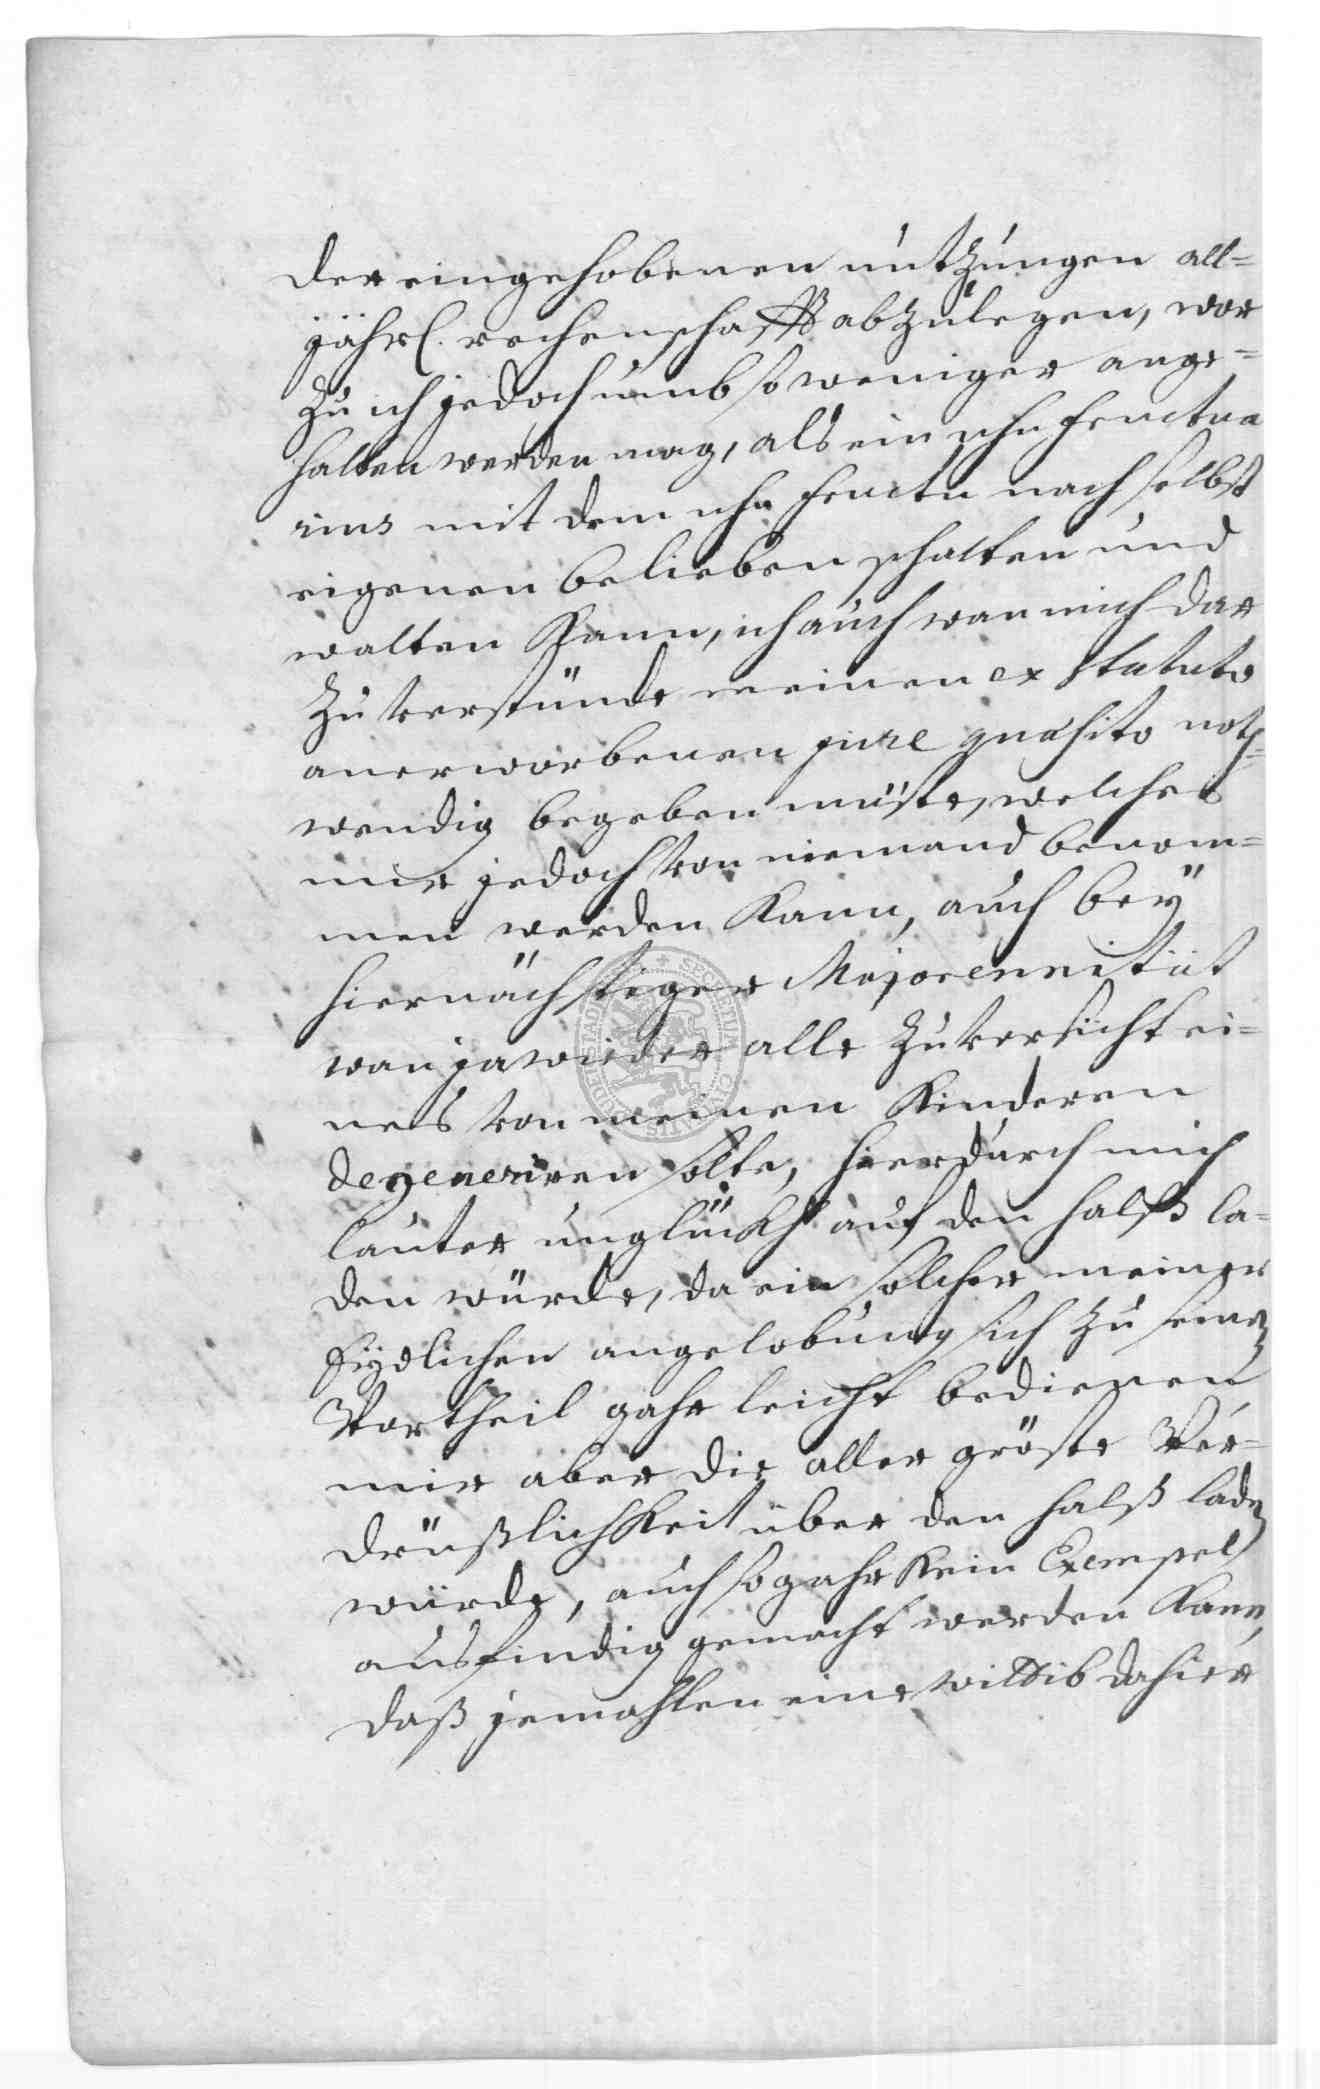 der eingehobenen nutzungen all=
jährl. rechenschafft abzulegen, wor
zu ich jedoch umb so weniger ange=
halten werden mag, als ein usu fructua
rius mit dem usu fructu nach selbst
eigenen belieben schalten und
walten kann, ich auch wan mich dar
zu verstünde meinen ex statuto
anerworbenen jure quæsito noth=
wendig begeben müste, welches
mir jedoch von niemand benom=
men werden kann, auch bey
hiernächstiger Majorennität
wan ja wieder alle zuversicht ei=
nes von meinen kinderen
degeneriren solte, hierdurch mich
lauter unglückh auf den halß la=
den würde, da ein solcher meiner
Eydlichen angelobung sich zu seinen
Vortheil gahr leicht bedienen
mir aber die aller gröste Ver=
drüßlichkeit über den halß laden
würde, auch so gahr kein Exempel
ausfindig gemacht werden kann,
daß jemahlen eine wittib dahier